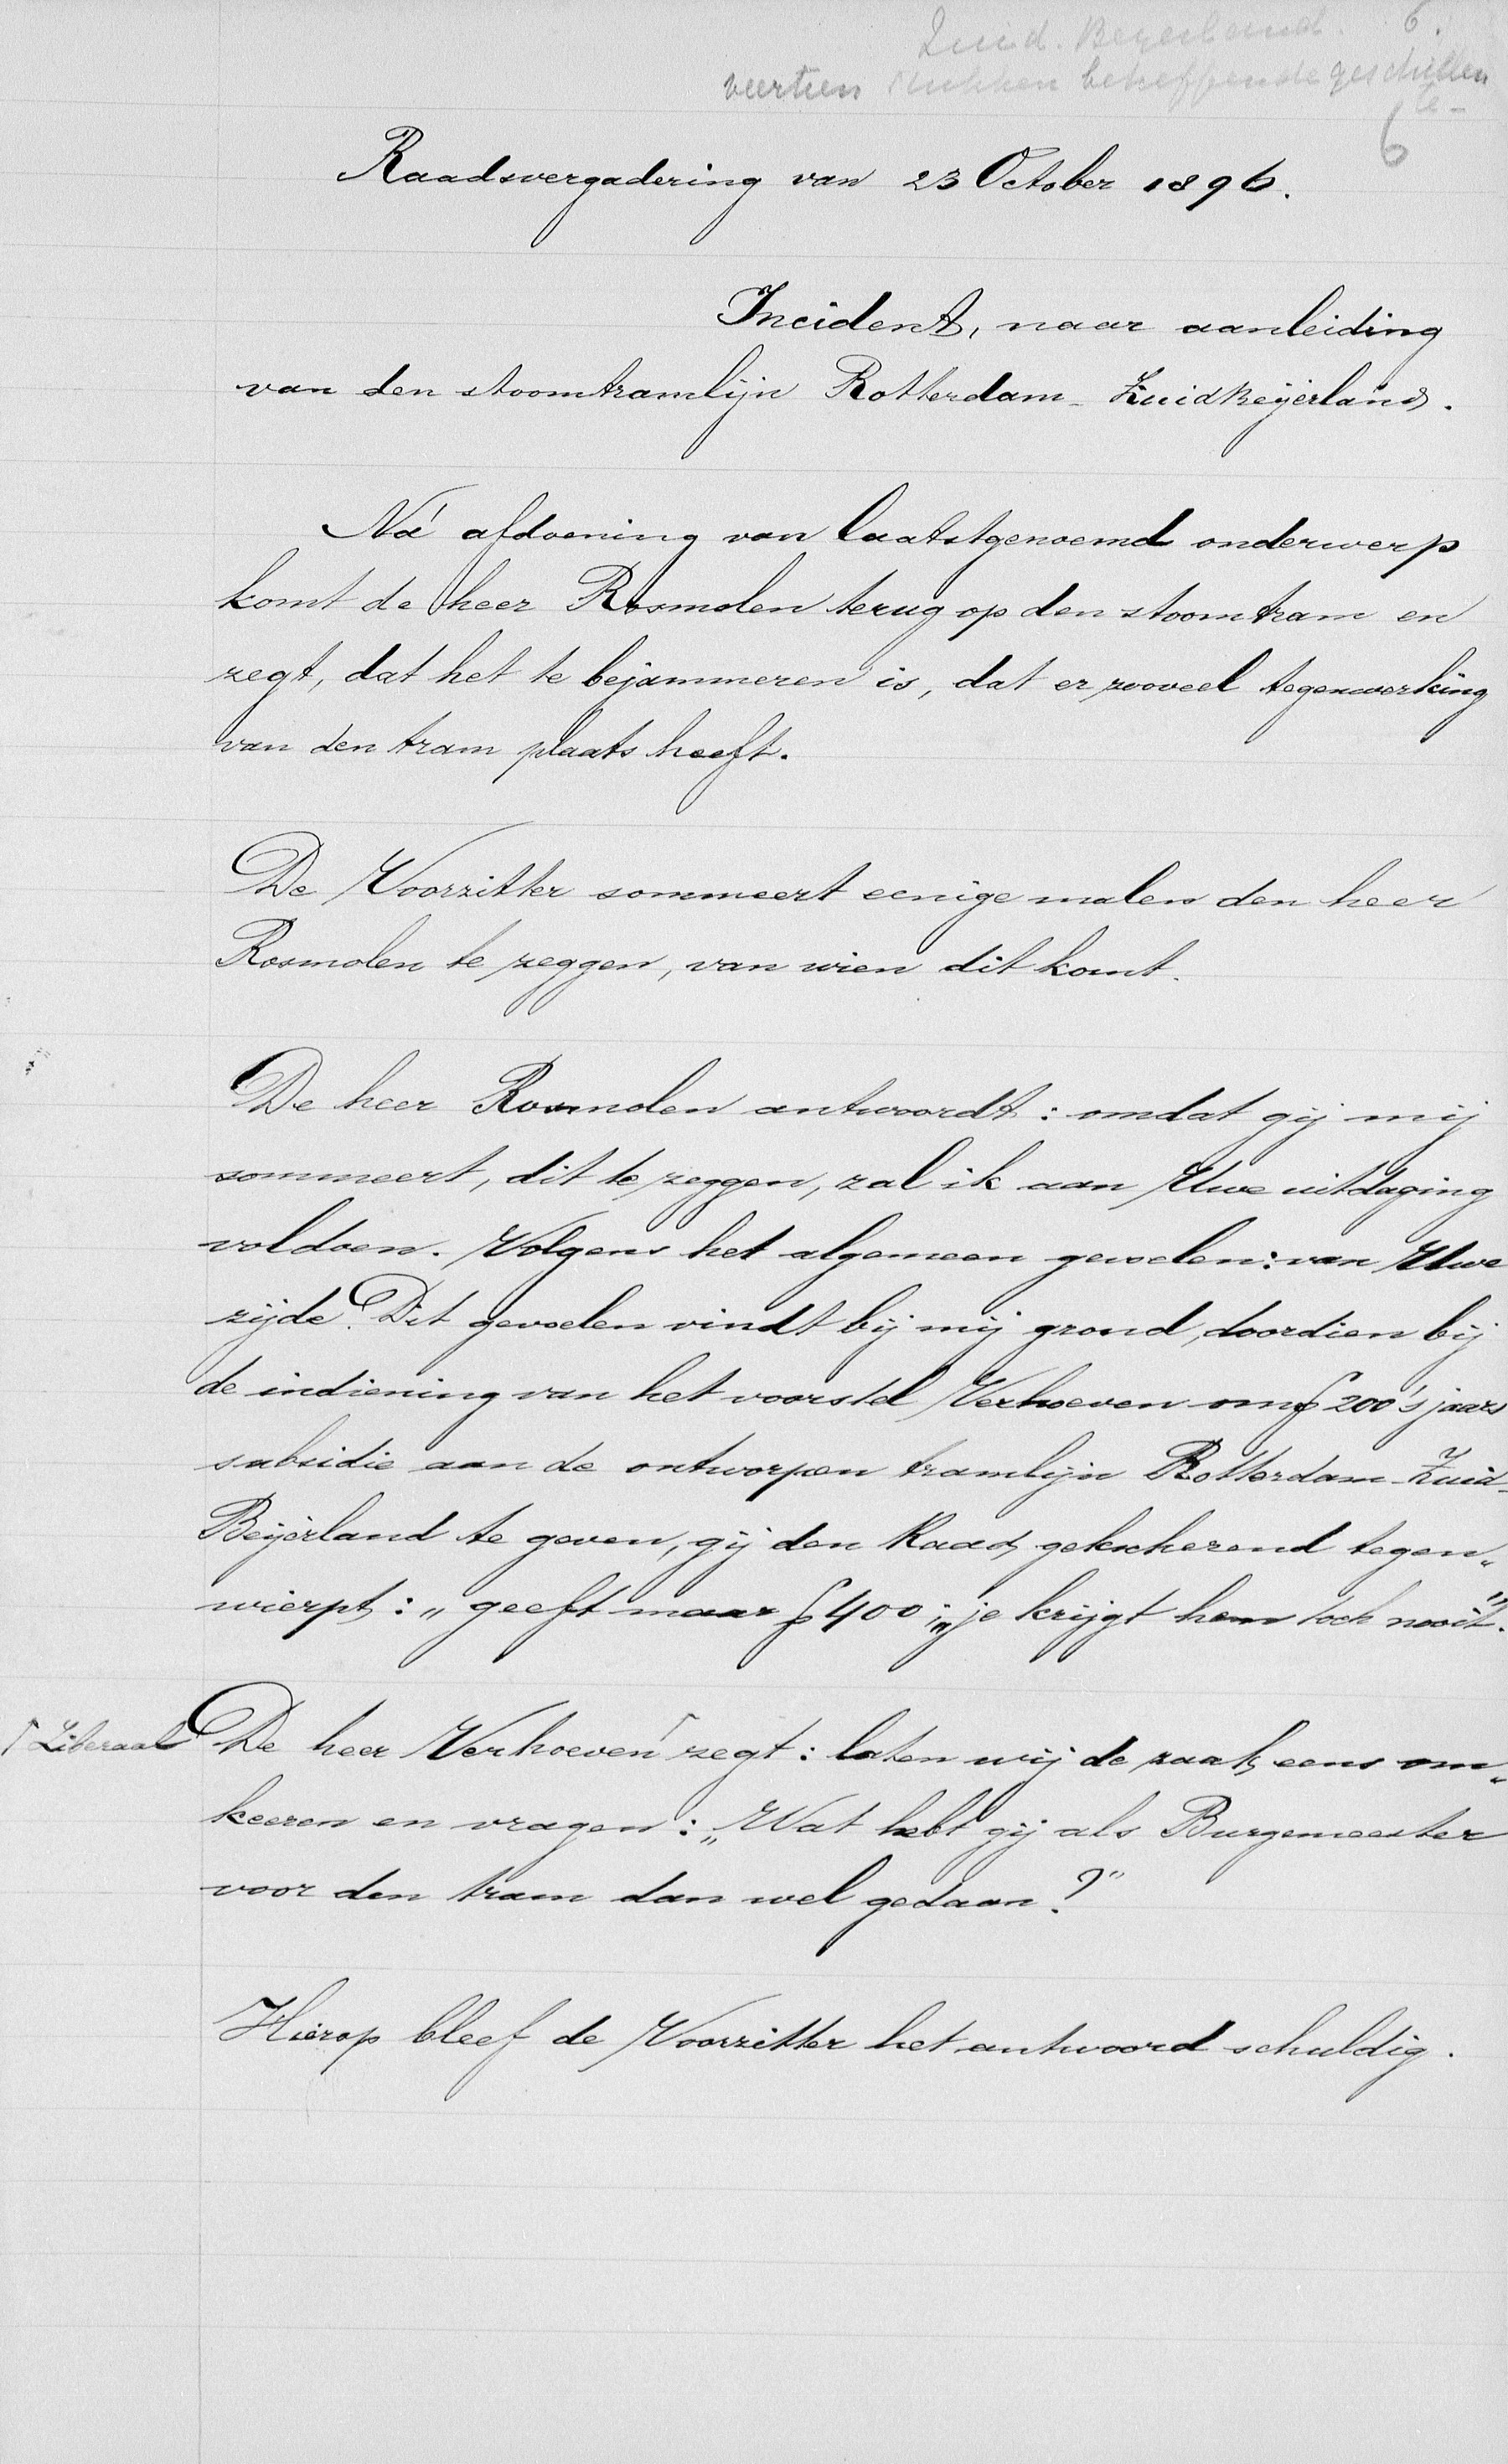 Zuid. Beyerland. 6.
veertien stukken betreffende geschillen
6
Raadsvergadering van 23 October 1896.
Incident, naar aanleiding
van den stoomtramlijn Rotterdam-ZuidBeijerland.
Ná afdoening van laatstgenoemd onderwerp
komt de heer Rosmolen terug op den stoomtram en
zegt, dat het te bejammeren is, dat er zooveel tegenwerking
van den tram plaats heeft.
De Voorzitter sommeert eenige malen den heer
Rosmolen te zeggen, van wien dit komt.
De heer Rosmolen antwoordt: omdat gij mij
sommeert, dit te zeggen, zal ik aan Uwe uitdaging
voldoen. Volgens het algemeen gevoelen: van Uwe
zijde. Dit gevoelen vindt bij mij grond, doordien bij
de indiening van het voorstel Verhoeven om ƒ 200 's jaars
subsidie aan de ontworpen tramlijn Rotterdam-Zuid-
Beijerland te geven, gij den Raad gekscherend tegen„
wierpt: „geeft maar ƒ 400; „je krijgt hem toch nooit."
De heer Verhoeven ┌ zegt: laten wij de zaak eens om„
┌ Liberaal
keeren en vragen: „Wat hebt gij als Burgemeester
voor den tram dan wel gedaan?"
Hierop bleef de Voorzitter het antwoord schuldig.